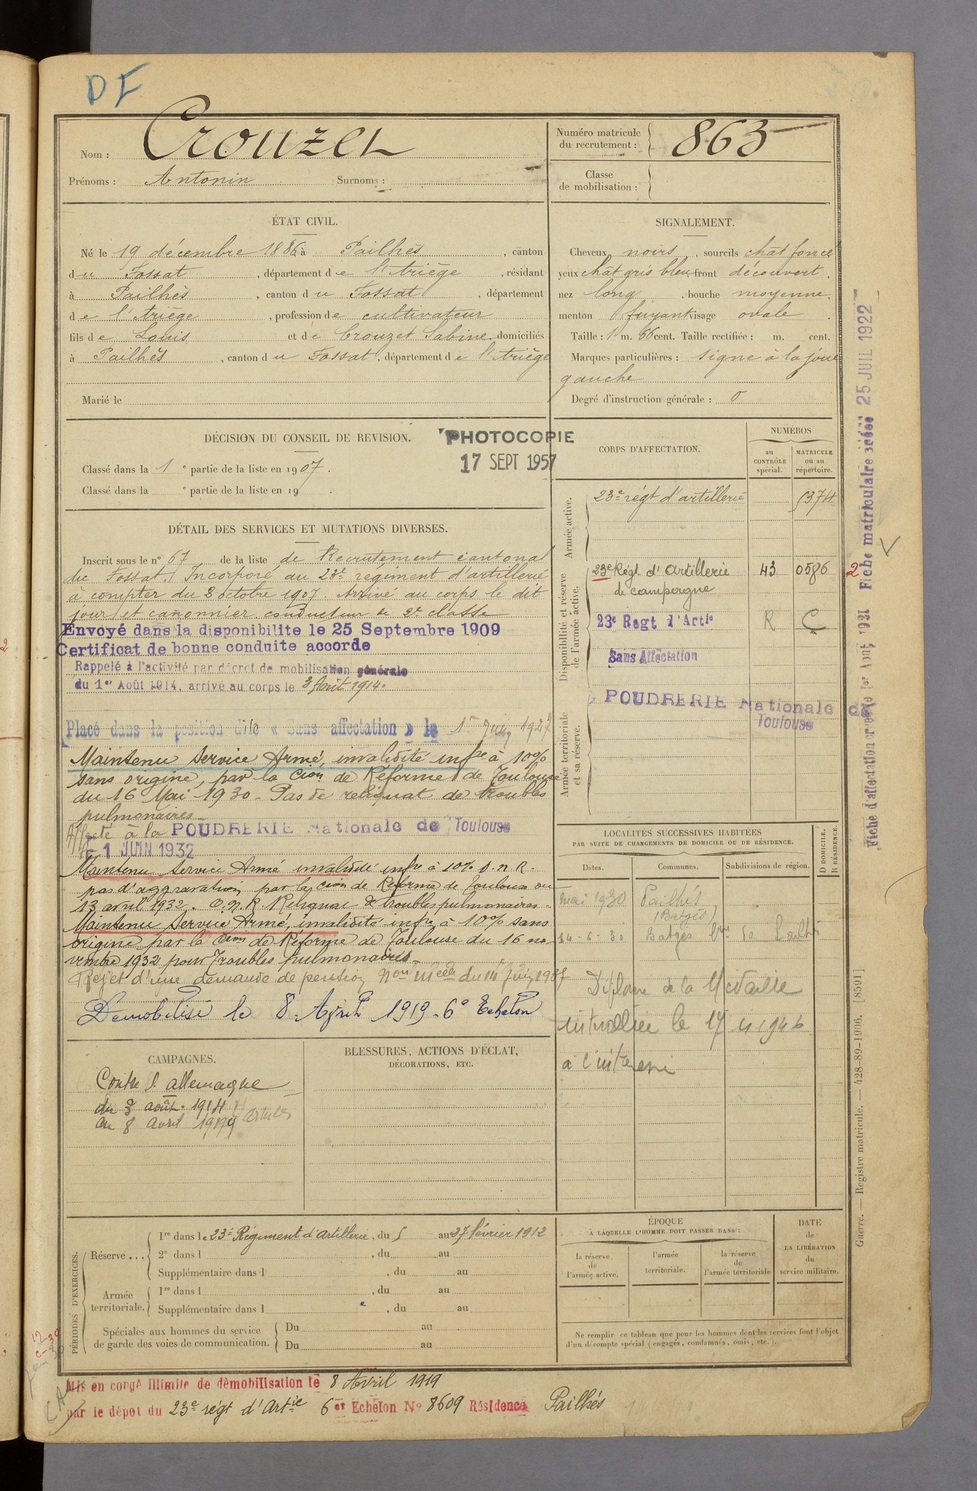 DF
Nom : Crouzet
Prénoms : Antonin Surnoms :
Numéro matricule du recrutement : 863
Classe de mobilisation :
ÉTAT CIVIL.
Né le 19 décembre 1886 à Pailhès, canton
du Fossat, département de l'Ariège, résidant
à Pailhès, canton du Fossat, département
de l'Ariège, profession de cultivateur
fils de Louis et de Crouzet Sabine, domiciliés
à Pailhès, canton du Fossat, département de l'Ariège
Marié le
SIGNALEMENT.
Cheveux noirs, sourcils chat foncé
yeux chat gris bleu, front découvert,
nez long, bouche moyenne,
menton fuyant visage ovale.
Taille : 1 m. 66 cent. Taille rectifiée : m. cent.
Marques particulières : signe à la joue
gauche
Degré d'instruction générale : 0
DÉCISION DU CONSEIL DE REVISION.
PHOTOCOPIE
17 SEPT 1957
Classé dans la 1e partie de la liste en 1907.
Classé dans la e partie de la liste en 19 .
DÉTAIL DES SERVICES ET MUTATIONS DIVERSES.
Inscrit sous le n° 67 de la liste de Recrutement cantonal
du Fossat. Incorporé au 23e régiment d'artillerie
à compter du 8 octobre 1907. Arrivé au corps le dit
jour et canonnier conducteur de 2e classe
Envoyé dans la disponibilite le 25 Septembre 1909
Certificat de bonne conduite accorde
Rappelé à l'activité par décret de mobilisation générale
du 1er Août 1914, arrivé au corps le 3 Août 1914.
Placé dans la position dite « Sans affectation » le 1er Juin 1927
Maintenu Service Armé, invalidité infre à 10%
sans origine, par la Cion de Réforme de Toulouse
du 16 Mai 1930 - Pas de reliquat de troubles
pulmonaires -
Affecté à la POUDRERIE Nationale de Toulouse
le 1 JUIN 1932
Maintenu Service Armé invalidité infre à 10% O.n.R.
pas d'aggravation, par la Cion de Réforme de Toulouse du
13 avril 1932. O.n.R Reliquat de troubles pulmonaires -
Maintenu Service Armé, invalidité infre à 10% sans
origine par la Cion de Réforme de Toulouse du 16 no
vembre 1932 pour Troubles pulmonaires.
Rejet d'une demande de pension
Démobilisé le 8 Avril 1919 - 6e Echelon
CORPS D'AFFECTATION.
NUMÉROS
AU CONTRÔLE spécial.
MATRICULE ou au répertoire.
Armée active.
23e régt d'artillerie 5374
Disponibilité et réserve de l'armée active.
23e Régt d'Artillerie 43 0586 2
de campagne
23e Regt d'Artie R C
Sans Affectation
Armée territoriale et sa réserve.
POUDRERIE Nationale de
Toulouse
Fiche matriculaire créée 25 JUIL 1922
Fiche d'affectation créée le 1er Août 1931
LOCALITÉS SUCCESSIVES HABITÉES
PAR SUITE DE CHANGEMENTS DE DOMICILE OU DE RÉSIDENCE.
Dates. Communes. Subdivisions de région. D DOMICILE. R RÉSIDENCE.
mai 1930 Pailhès
14-6-30
Diplome de la Médaille
le 17 4 1946
CAMPAGNES.
Contre l'allemagne
du 3 août 1914
au 8 avril 1919
BLESSURES, ACTIONS D'ÉCLAT,
DÉCORATIONS, ETC.
PÉRIODES D'EXERCICES.
Réserve . . .
1re dans le 23e Régiment d'artillerie, du 5 au 27 février 1912
2e dans l , du au
Supplémentaire dans l , du au
Armée territoriale.
1re dans l , du au
Supplémentaire dans l , du au
Spéciales aux hommes du service de garde des voies de communication.
Du au
Du au
ÉPOQUE
À LAQUELLE L'HOMME DOIT PASSER DANS :
la réserve de l'armée active.
l'armée territoriale.
la réserve de l'armée territoriale
DATE de LA LIBÉRATION du service militaire.
Ne remplir ce tableau que pour les hommes dont les services font l'objet
d'un décompte spécial (engagés, condamnés, omis, etc.).
Guerre. — Registre matricule. — 428-89-1906. [8591]
Mis en congé illimité de démobilisation le 8 Avril 1919
par le dépot du 23e régt d'Artie 6e Echelon No 8609 Résidence Pailhés